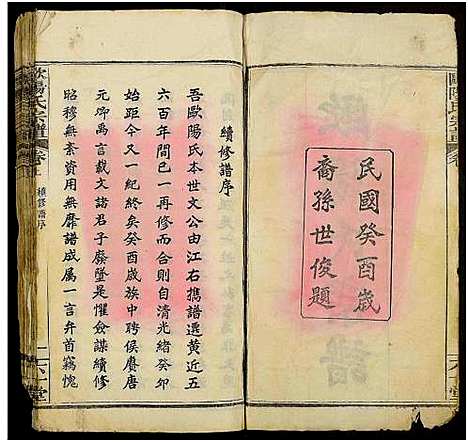 民國癸酉歲
裔孫世俊題
續修譜序
吾歐陽氏本世文公由江右攜譜遷黃近五
六百年間已一再修而序自清光緒癸卯
始距今又一紀終矣癸酉歲族中聘侯賡唐
元卿禹言載文諸君子廢墜是懼僉謀續修
昭穆無紊資用無靡譜成属一言弁首竊愧
歐陽氏宗譜
卷之上
續修譜序
六一堂
歐陽氏宗譜
六一堂